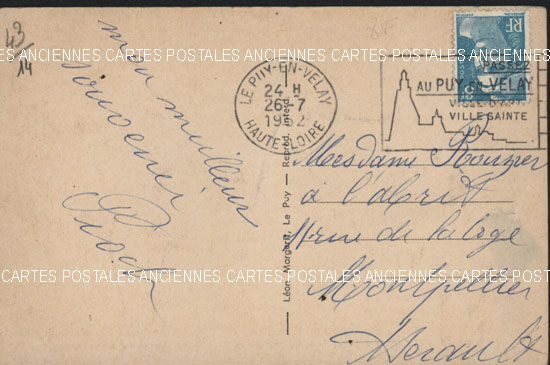 43
14
mon meilleur
souvenir
LE PUY-EN-VELAY
24 H
26-7
1952
HAUTE-LOIRE
RF
PASSEZ
AU PUY-EN-VELAY
VILLE D'ART
VILLE SAINTE
Mesdame Rouzier
à l'abri
rue de la loge
Montpellier
Herault
Léon Margerit, Le Puy — Reprod. interd.
ANCIENNES CARTES POSTALES ANCIENNES CARTES POSTALES ANCIENNES CARTES POSTALES
CARTES POSTALES ANCIENNES CARTES POSTALES ANCIENNES CARTES POSTALES ANCIENNES